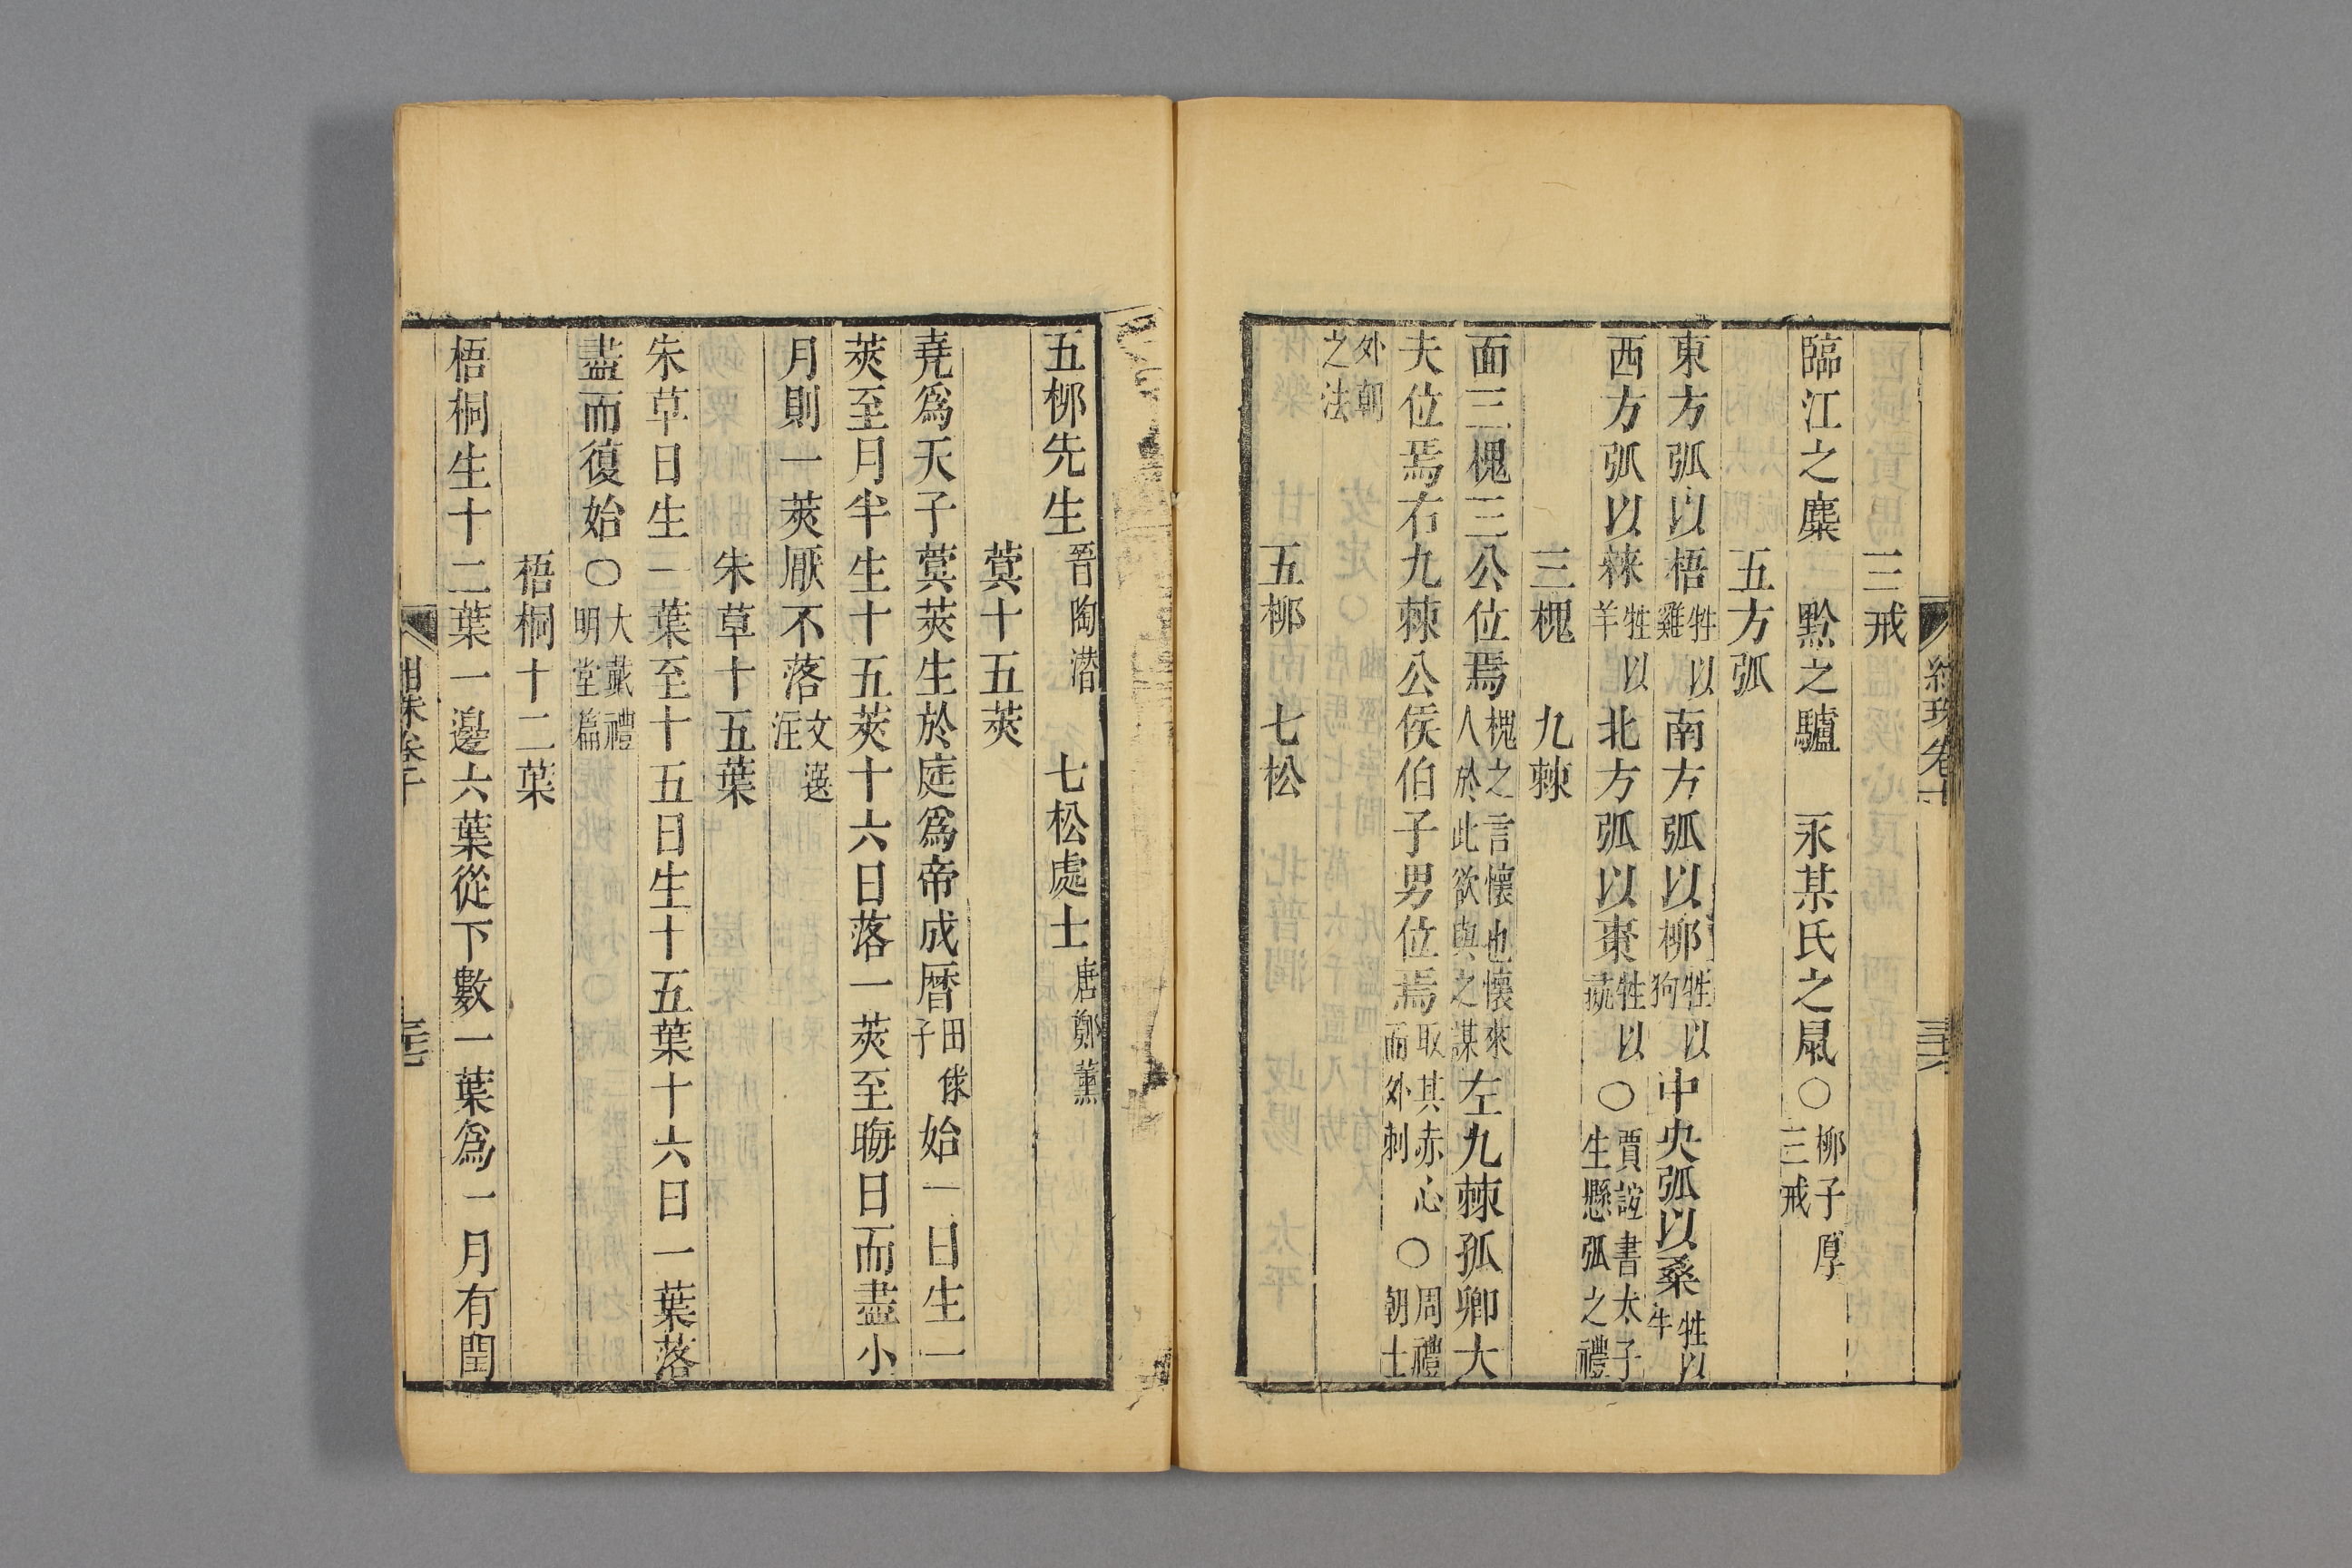 三戒
臨江之麋 黔之驢 永某氏之鼠○柳子厚三戒
五方弧
東方弧以梧牲以雞南方弧以柳牲以狗中央弧以桑牲以牛
西方弧以棘牲以羊北方弧以棗牲以㹠○賈誼書太子生懸弧之禮
三槐 九棘
面三槐三公位焉槐之言懷也懷來人於此欲與之謀左九棘孤卿大
夫位焉右九棘公侯伯子男位焉取其赤心而外刺○周禮朝士
外朝之法
五栁 七松
五栁先生晉陶潜 七松處士唐鄭薰
蓂十五莢
堯爲天子蓂莢生於庭爲帝成曆田俅子始一日生一
莢至月半生十五莢十六日落一莢至晦日而盡小
月則一莢厭不落文選注
朱草十五葉
朱草日生一葉至十五日生十五葉十六日一葉落
盡而復始○大戴禮明堂篇
梧桐十二葉
梧桐生十二葉一邊六葉從下數一葉爲一月有閏